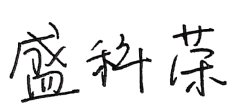 盛科荣